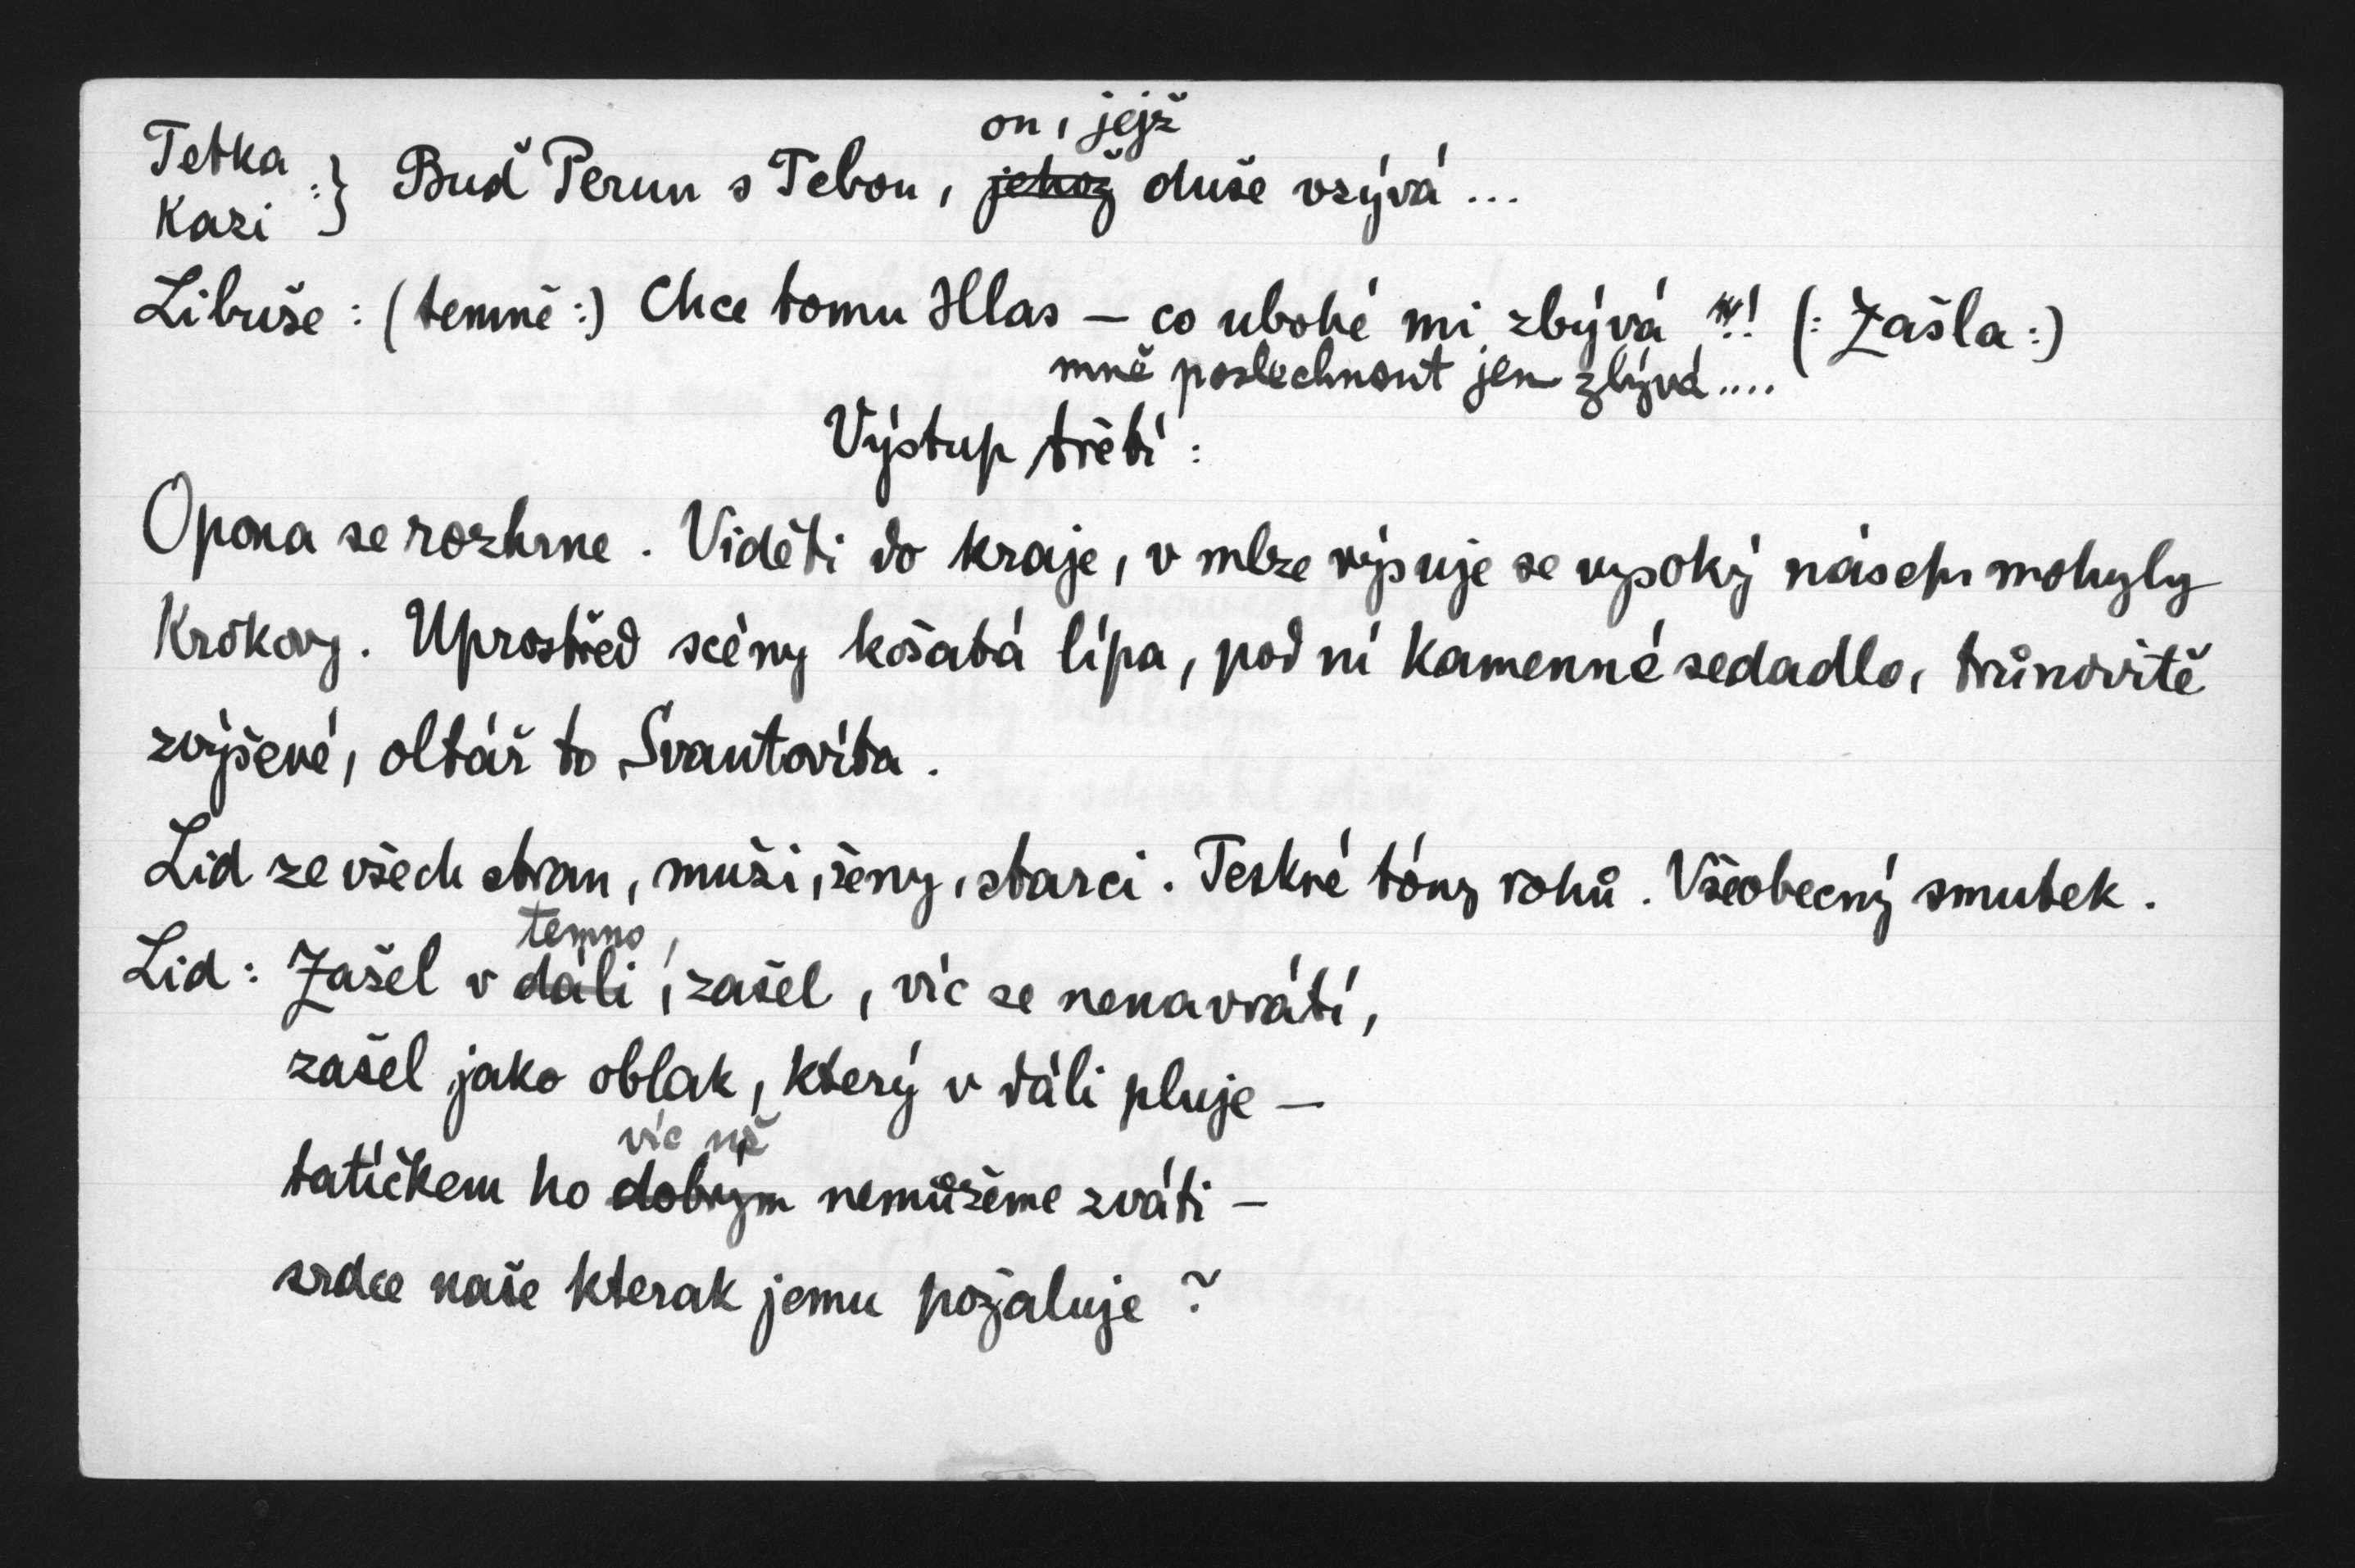 on, jejž
Tetka
Kazi :} Buď Perun s Tebou, jehož duše vzývá ...
Libuše : (temně :) Chce tomu Hlas – co ubohé mi zbývá ?! (: Zašla :)
mně poslechnout jen zbývá ....
Výstup třetí :
Opona se rozhrne . Viděti do kraje, v mlze rýsuje se vysoký násep mohyly
Krokovy . Uprostřed scény košatá lípa, pod ní kamenné sedadlo, trůnovitě
zvýšené, oltář to Svantovíta .
Lid ze všech stran, muži, ženy, starci . Teskné tóny rohů . Všeobecný smutek .
temno,
Lid : Zašel v dáli, zašel, víc se nenavrátí,
zašel jako oblak, který v dáli pluje –
víc už
tatíčkem ho dobrým nemůžeme zváti –
srdce naše kterak jemu požaluje ?